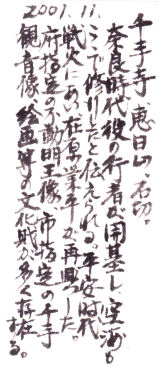 2001.11.
千手寺、恵日山、石切。
奈良時代役の行者が開基し、空海も
ここで修行したと伝えられる。平安時代
戦火にあい在原業平が再興した。
府指定の不動明王像、市指定の千手
観音像、絵画等の文化財が多く存在
する。